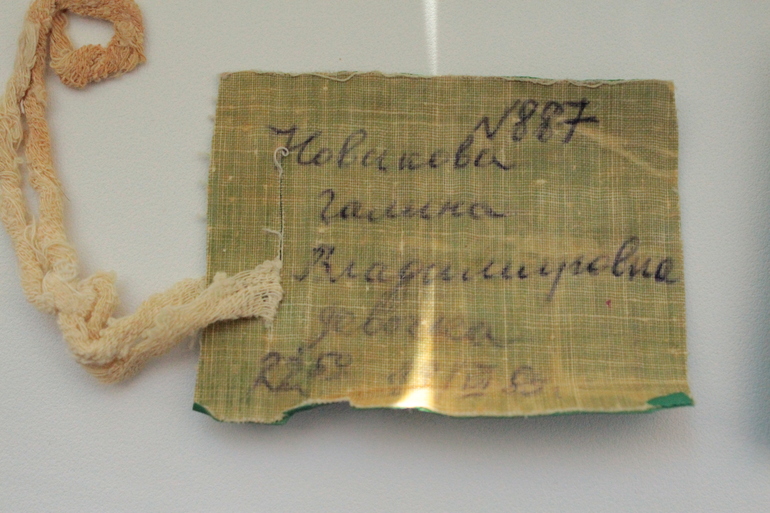 N887
Новикова
Галина
Владимировна
девочка